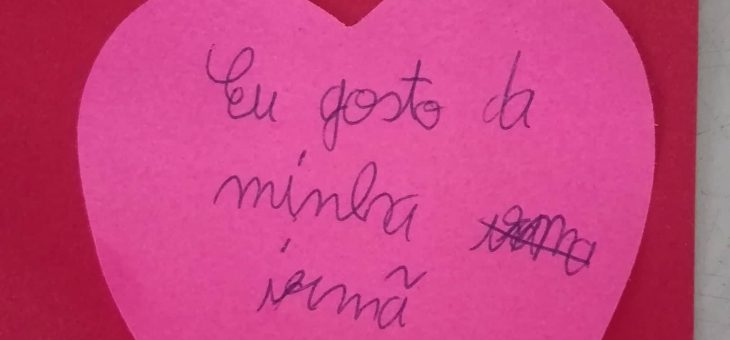 Eu gosto da
minha irma
irmã